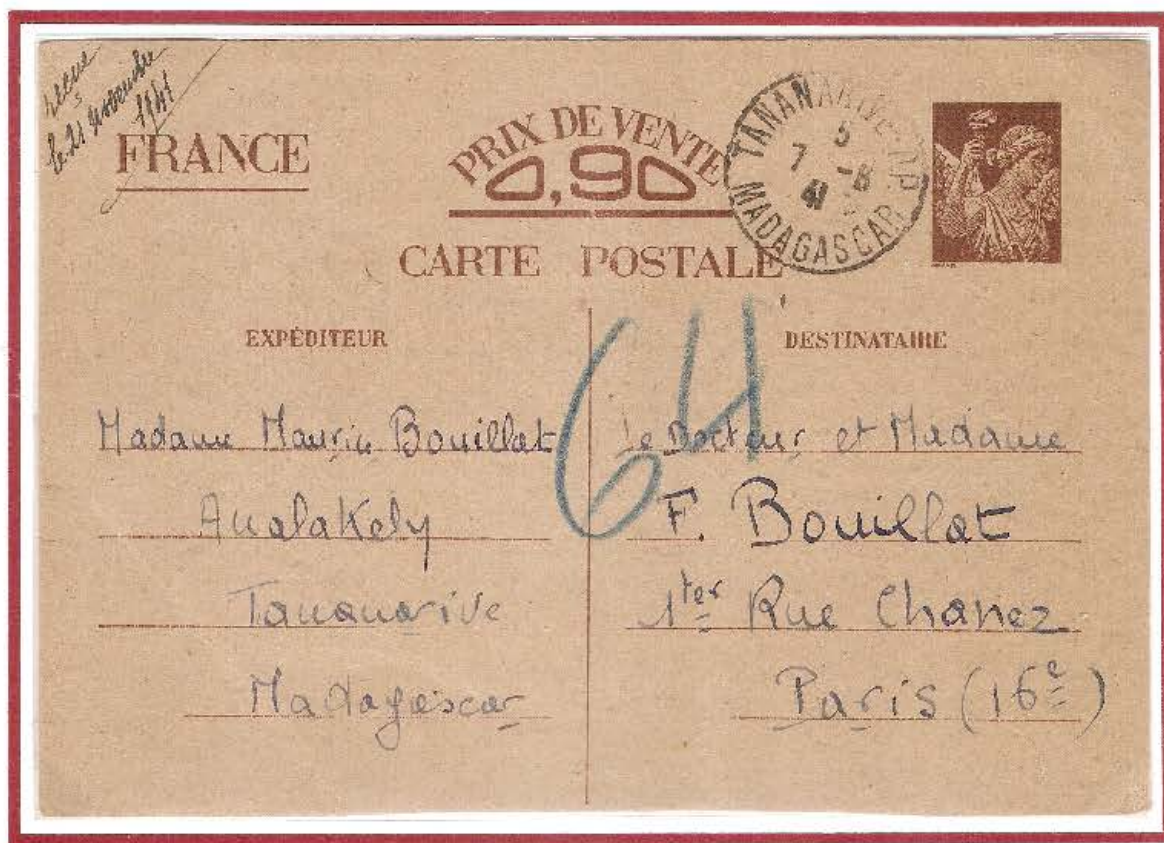 reçue
le 21 novembre
1941
FRANCE
PRIX DE VENTE
0,90
CARTE POSTALE
TANANARIVE R.P
5
7 -8
41
MADAGASCAR
EXPÉDITEUR
Madame Maurice Bouillat
Analakely
Tananarive
Madagascar
64
DESTINATAIRE
Le Docteur et Madame
F. Bouillat
1ter Rue Chanez
Paris (16e)